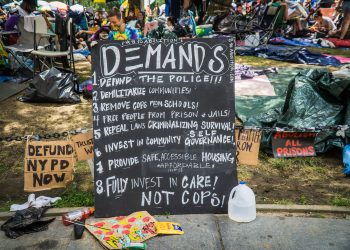 DEMANDS
1. DEFUND THE POLICE!!!
2. DEMILITARIZE COMMUNITIES!
3. REMOVE COPS FROM SCHOOLS!
4. FREE PEOPLE FROM PRISON & JAILS!
5. REPEAL LAWS CRIMINALIZING SURVIVAL!
6. INVEST IN COMMUNITY SELF GOVERNANCE!
7. PROVIDE SAFE, ACCESSIBLE, HOUSING,
AFFORDABLE
8. FULLY INVEST IN CARE!
NOT COPS!
DEFUND
NYPD
NOW
ABOLISH
ALL
PRISONS